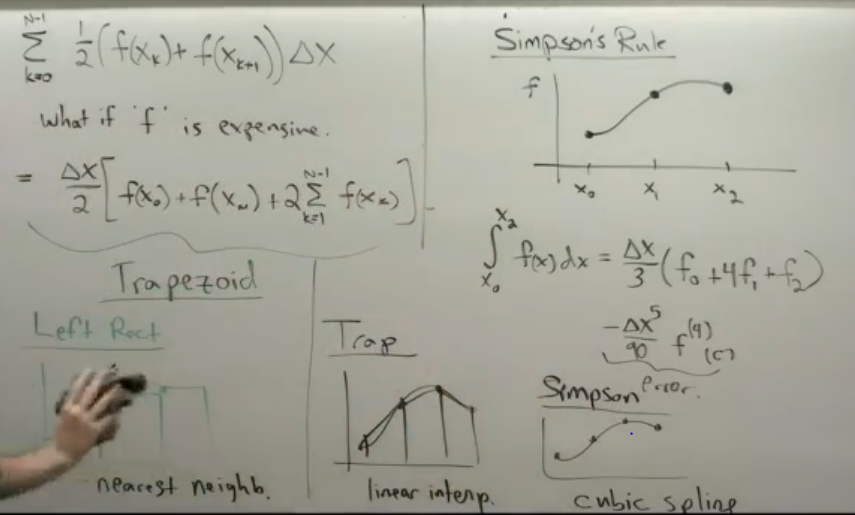 N-1
∑ 1/2 (f(x_k) + f(x_{k+1})) ΔX
k=0
What if 'f' is expensive.
= ΔX/2 [f(x_0) + f(x_N) + 2 ∑_{k=1}^{N-1} f(x_k)]
Trapezoid
Left Rect
nearest neighb.
Trap
linear interp.
Simpson's Rule
f
x_0 x_1 x_2
∫_{x_0}^{x_2} f(x) dx = ΔX/3 (f_0 + 4f_1 + f_2)
-ΔX^5/90 f^{(4)}(c)
error.
Simpson
cubic spline